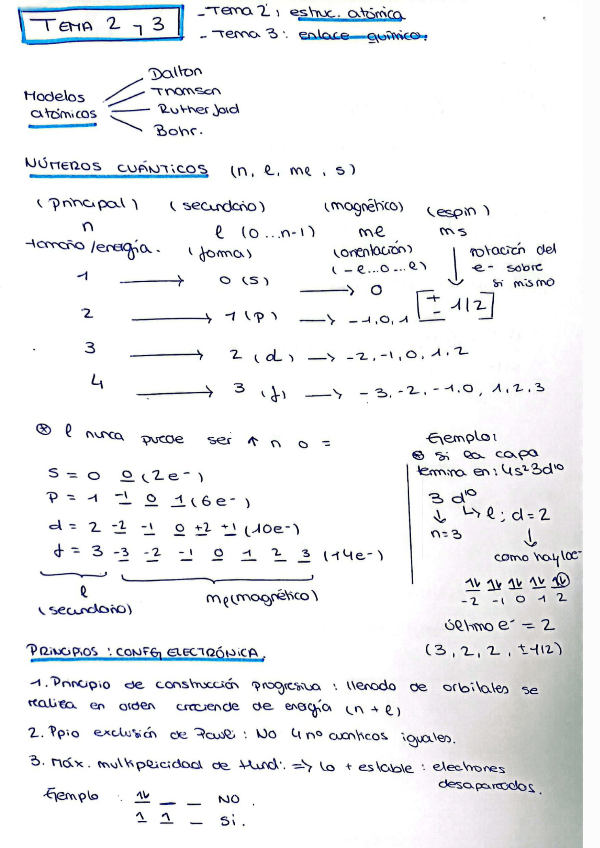 TEMA 2 y 3
- Tema 2: estruc. atómica
- Tema 3: enlace químico.
Modelos atómicos
Dalton
Thomson
Rutherford
Bohr.
NÚMEROS CUÁNTICOS (n, l, ml, s)
(principal) (secundario) (magnético) (espin)
n l (0...n-1) ml ms
tamaño/energía. (forma) (orientación) rotación del
(-l...0...l) e- sobre
si mismo
1 → 0 (s) → 0
2 → 1 (p) → -1,0,1 [± 1/2]
3 → 2 (d) → -2,-1,0,1,2
4 → 3 (f) → -3,-2,-1,0,1,2,3
⊛ l nunca puede ser ↑ n o =
S = 0 0 (2e-)
P = 1 -1 0 1 (6e-)
d = 2 -2 -1 0 +2 +1 (10e-)
f = 3 -3 -2 -1 0 1 2 3 (14e-)
l
(secundario)
ml (magnético)
Ejemplo:
si la capa
termina en: 4s² 3d¹⁰
3 d¹⁰
↓ ↳ l; d=2
n=3 ↓
como hay 10e-
⥮ ⥮ ⥮ ⥮ ⥮
-2 -1 0 1 2
último e- = 2
(3, 2, 2, ±1/2)
PRINCIPIOS: CONFG ELECTRÓNICA.
1. Principio de construcción progresiva: llenado de orbitales se
realiza en orden creciende de energía (n + l)
2. Ppio exclusión de Pauli: No 4 nº cuánticos iguales.
3. Máx. multiplicidad de Hund: => lo + estable: electrones
desapareados.
Ejemplo: ⥮ _ _ NO.
1 1 _ Si.